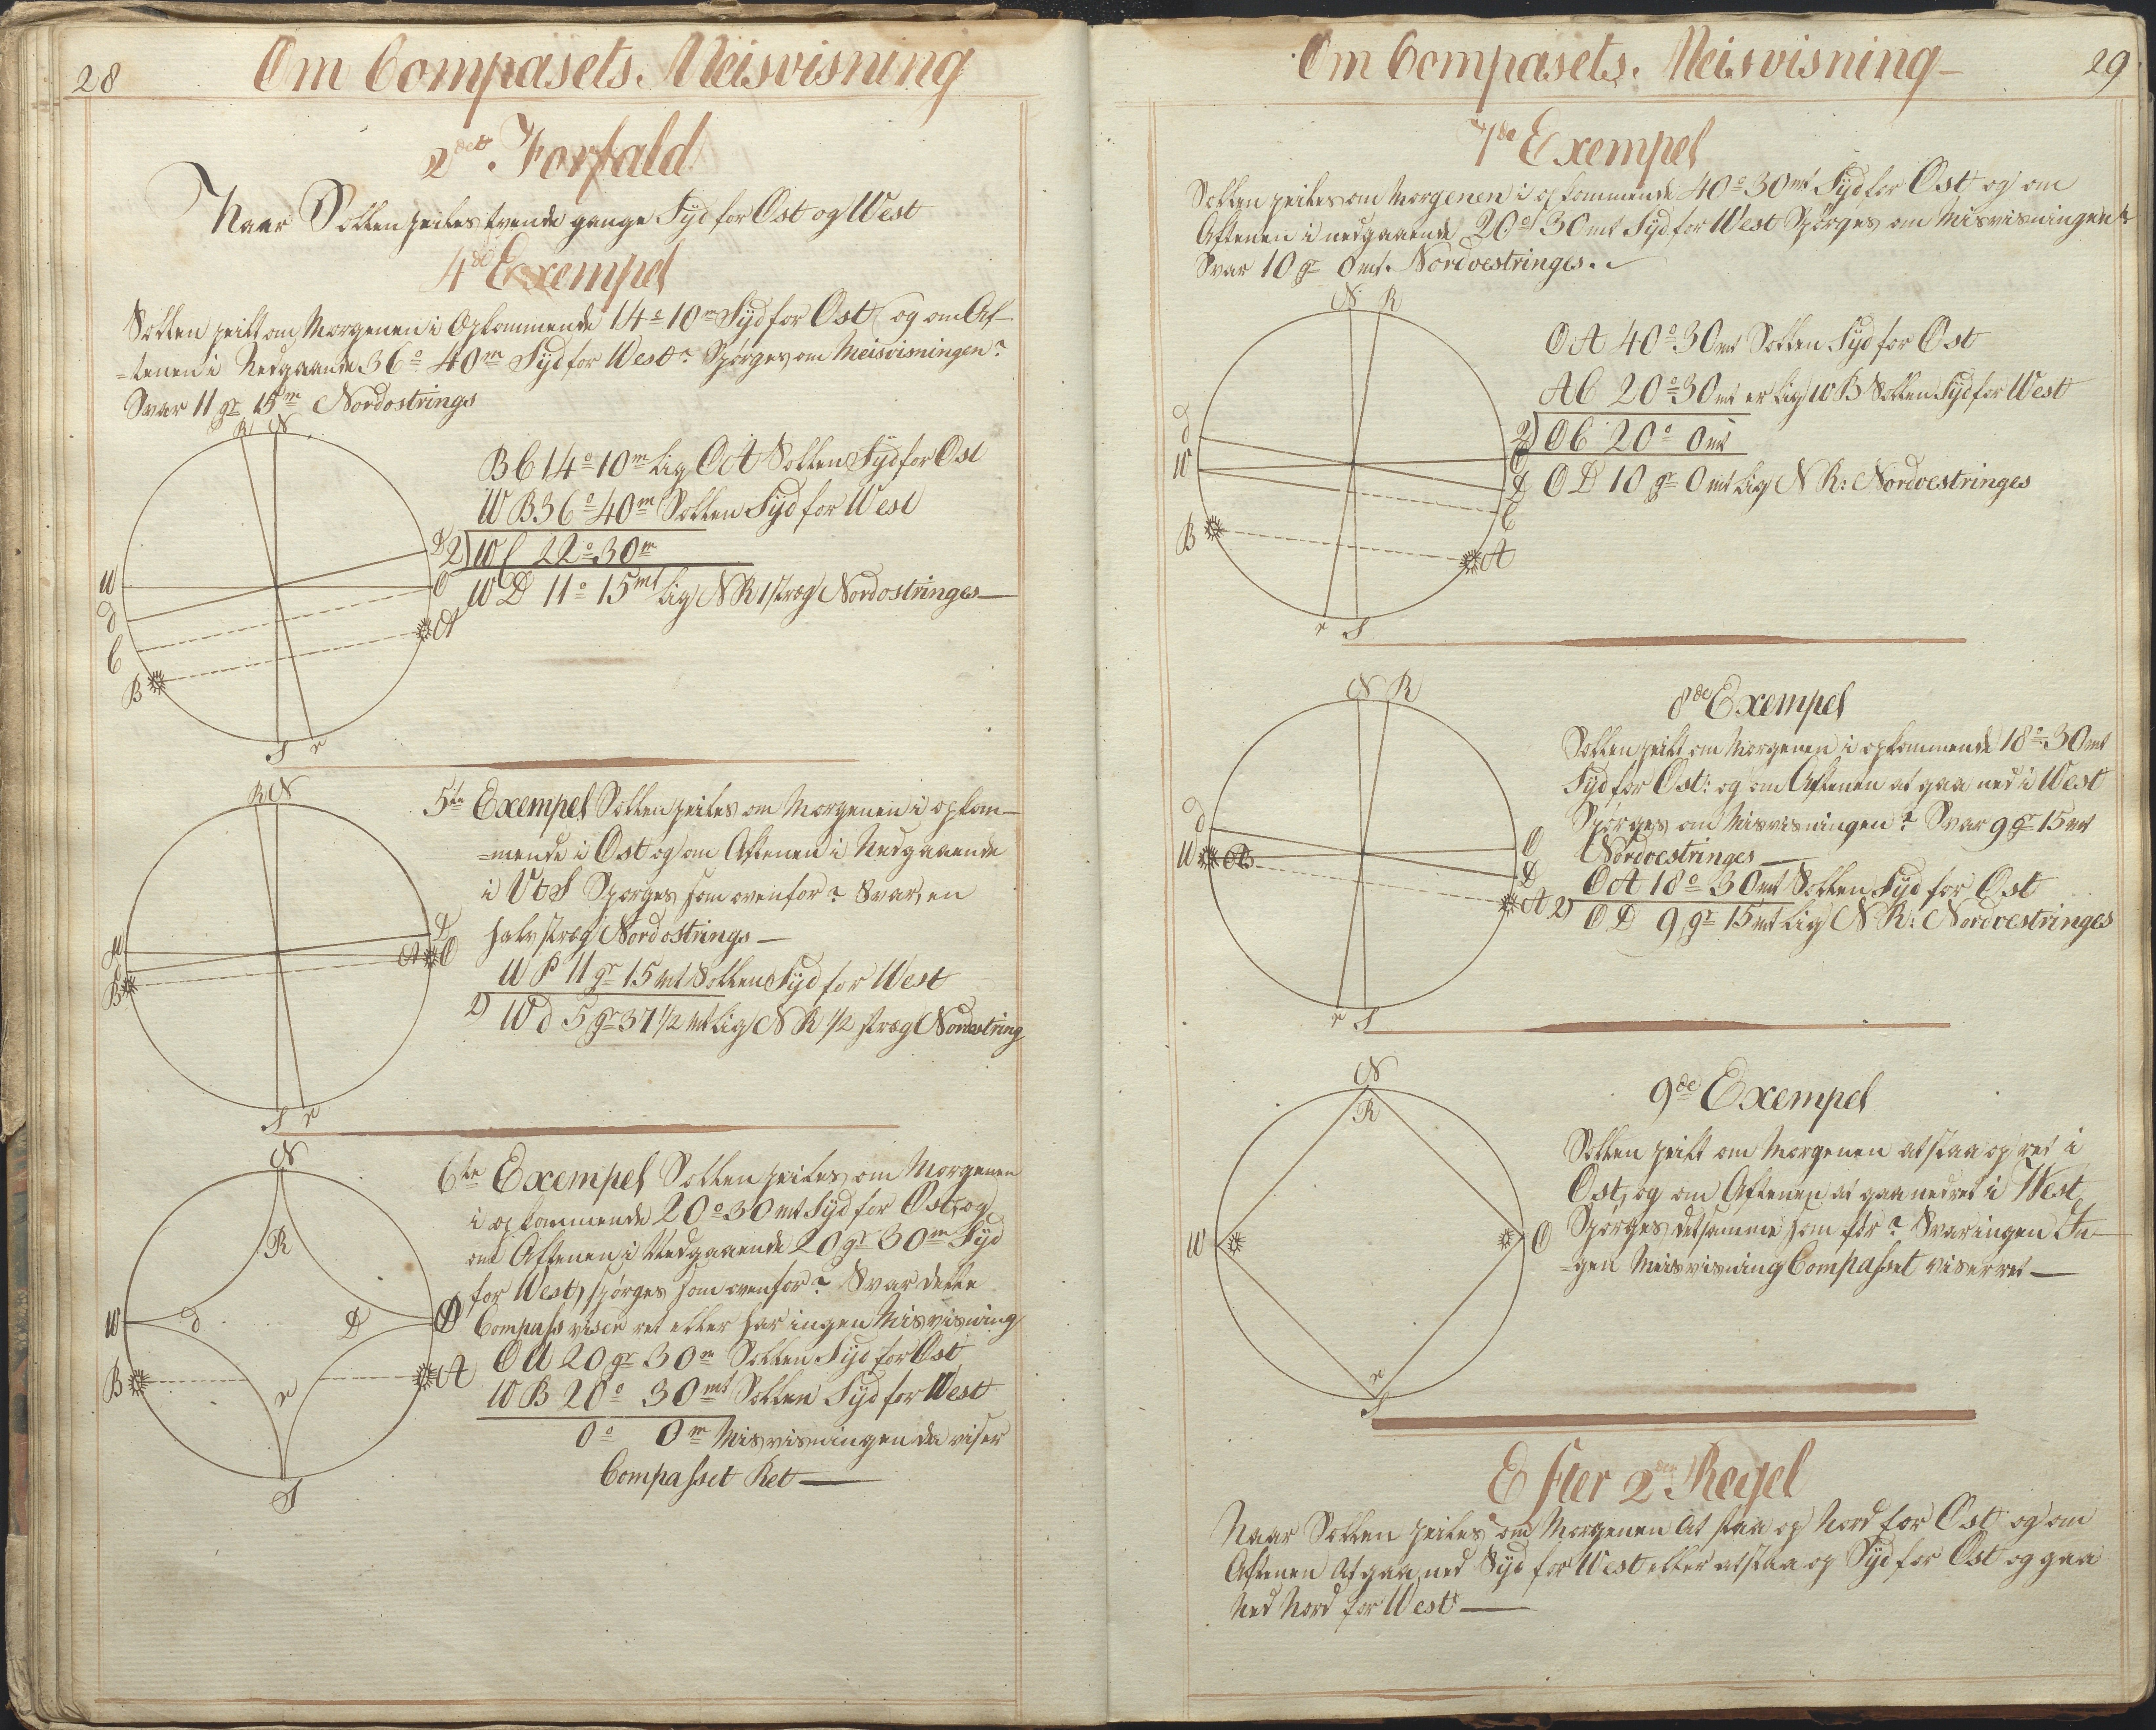 28
Om Compasets. Meisvisning
2det. Forfald
Naar Sollen peiles tvende gange Syd for Ost og West
4de Exempel
Sollen peilt om Morgenen i Opkommende 14° 10m Syd for Ost og om Af-
=tenen i Nedgaaende 36° 40m Syd for West? Spørges om Meisvisningen?
Svar 11 gr 15m Nordostrings
R N
BC 14° 10m Lig OA Sollen Syd for Ost
WB 36° 40m Sollen Syd for West
2) WC 22° 30m
WD 11° 15mt Lig NR 1 stræg Nordostringes
W d C B
D O A
S r
R N
5te Exempel Sollen peiles om Morgenen i opkom-
=mende i Ost og om Aftenen i Nedgaaende
i VtS Spørges som ovenfor? Svar, en
halv stræg Nordostrings
11 gr 15 mt Sollen Syd for West
2) Wd 5 gr 37 1/2 mt Lig NR 1/2 stræg Nordostring
W B
D A O
S r
N
6te Exempel Sollen peiles om Morgenen
i opkommende 20° 30 mt Syd for Ost, og
om Aftenen i Nedgaaende 20 gr 30m Syd
for West, spørges som ovenfor? Svar dette
Compass viser ret eller har ingen Misvisning
OA 20 gr 30m Sollen Syd for Ost
WB 20° 30mt Sollen Syd for West
0° 0m Misvisningen da viser
Compasset Ret
R
W d D O
B A
r
S
Om Compasets. Meisvisning
29
7de Exempel
Sollen peiles om Morgenen i opkommende 40° 30mt Syd for Ost og om
Aftenen i nedgaaende 20° 30mt Syd for West Spørges om Misvisningen?
Svar 10 gr 0mt. Nordvestringes.
N R
OA 40° 30mt Sollen Syd for Ost
AC 20° 30mt er Lig WB Sollen Syd for West
2) OC 20° 0mt
OD 10 gr 0mt Lig NR: Nordvestringes
d W B
O D C A
r S
N R
8de Exempel
Sollen peilt om Morgenen i opkommende 18° 30mt
Syd for Ost: og om Aftenen at gaa ned i West
Spørges om Misvisningen? Svar 9 gr 15mt
Nordvestringes
OA 18° 30mt Sollen Syd for Ost
2) OD 9 gr 15mt Lig NR: Nordvestringes
d W B
O D A
r S
N
R
9de Exempel
Sollen peilt om Morgenen at staa op ret i
Ost, og om Aftenen at gaa ned ret i West
Spørges detsamme som før? Svar ingen In-
=gen Meisvisning Compasset viser ret
W O
r
S
Efter 2den Regel
Naar Sollen peiles om Morgenen At staa op Nord for Ost og om
Aftenen At gaa ned Syd for West eller at staa op Syd for Ost og gaa
Ned Nord for West